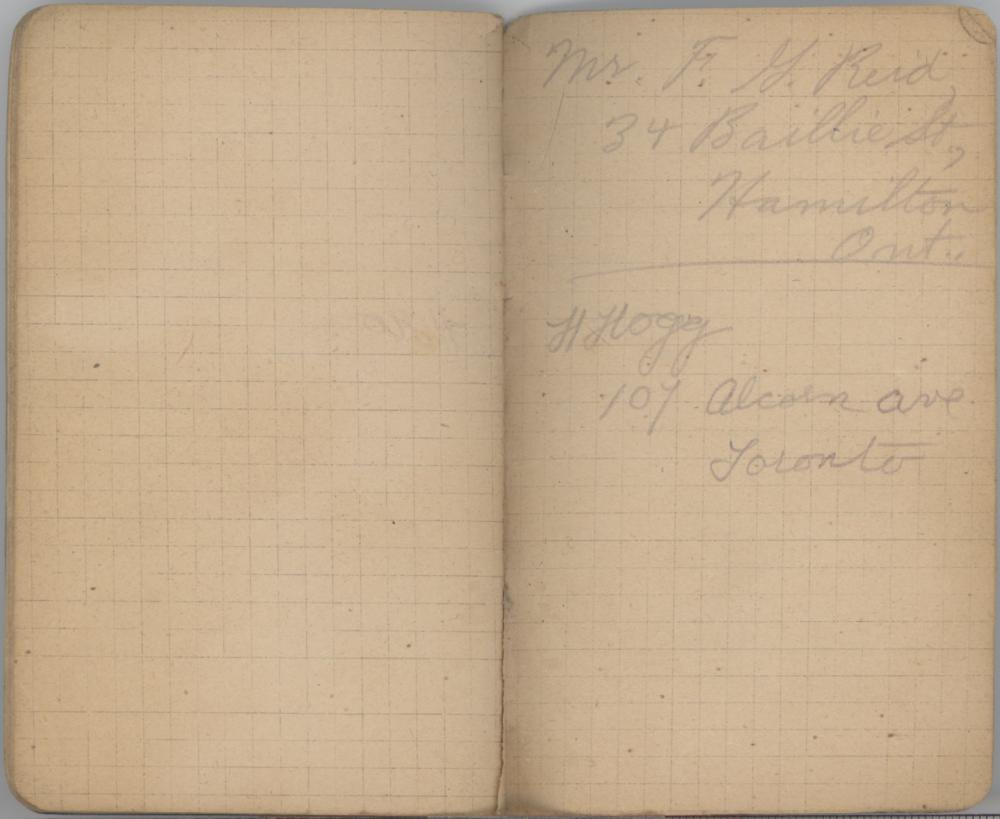 Mr. F. G. Reid,
34 Baillie St,
Hamilton
Ont..
H Hogg
107 Alcorn ave
Toronto